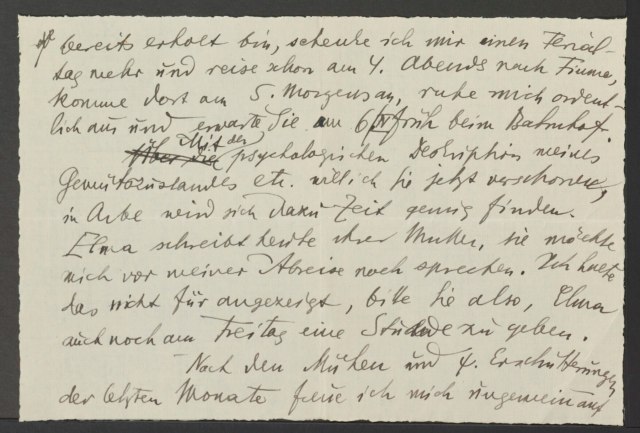 bereits erholt bin, schenke ich mir einen Ferial-
tag mehr und reise schon am 4. Abends nach Fiume,
komme dort am 5. Morgens an, ruhe mich ordent-
lich aus und erwarte Sie am 6 früh beim Bahnhof.
Mit der
Über die psychologischen Deskription meines
Gemütszustandes etc. will ich Sie jetzt verschonen,
in Arbe wird sich dazu Zeit genug finden.
Elma schreibt heute ihrer Mutter, sie möchte
mich vor meiner Abreise noch sprechen. Ich halte
das nicht für angezeigt, bitte Sie also, Elma
auch noch am Freitag eine Stunde zu geben.
Nach den Mühen und Erschütterungen
der letzten Monate freue ich mich ungemein auf